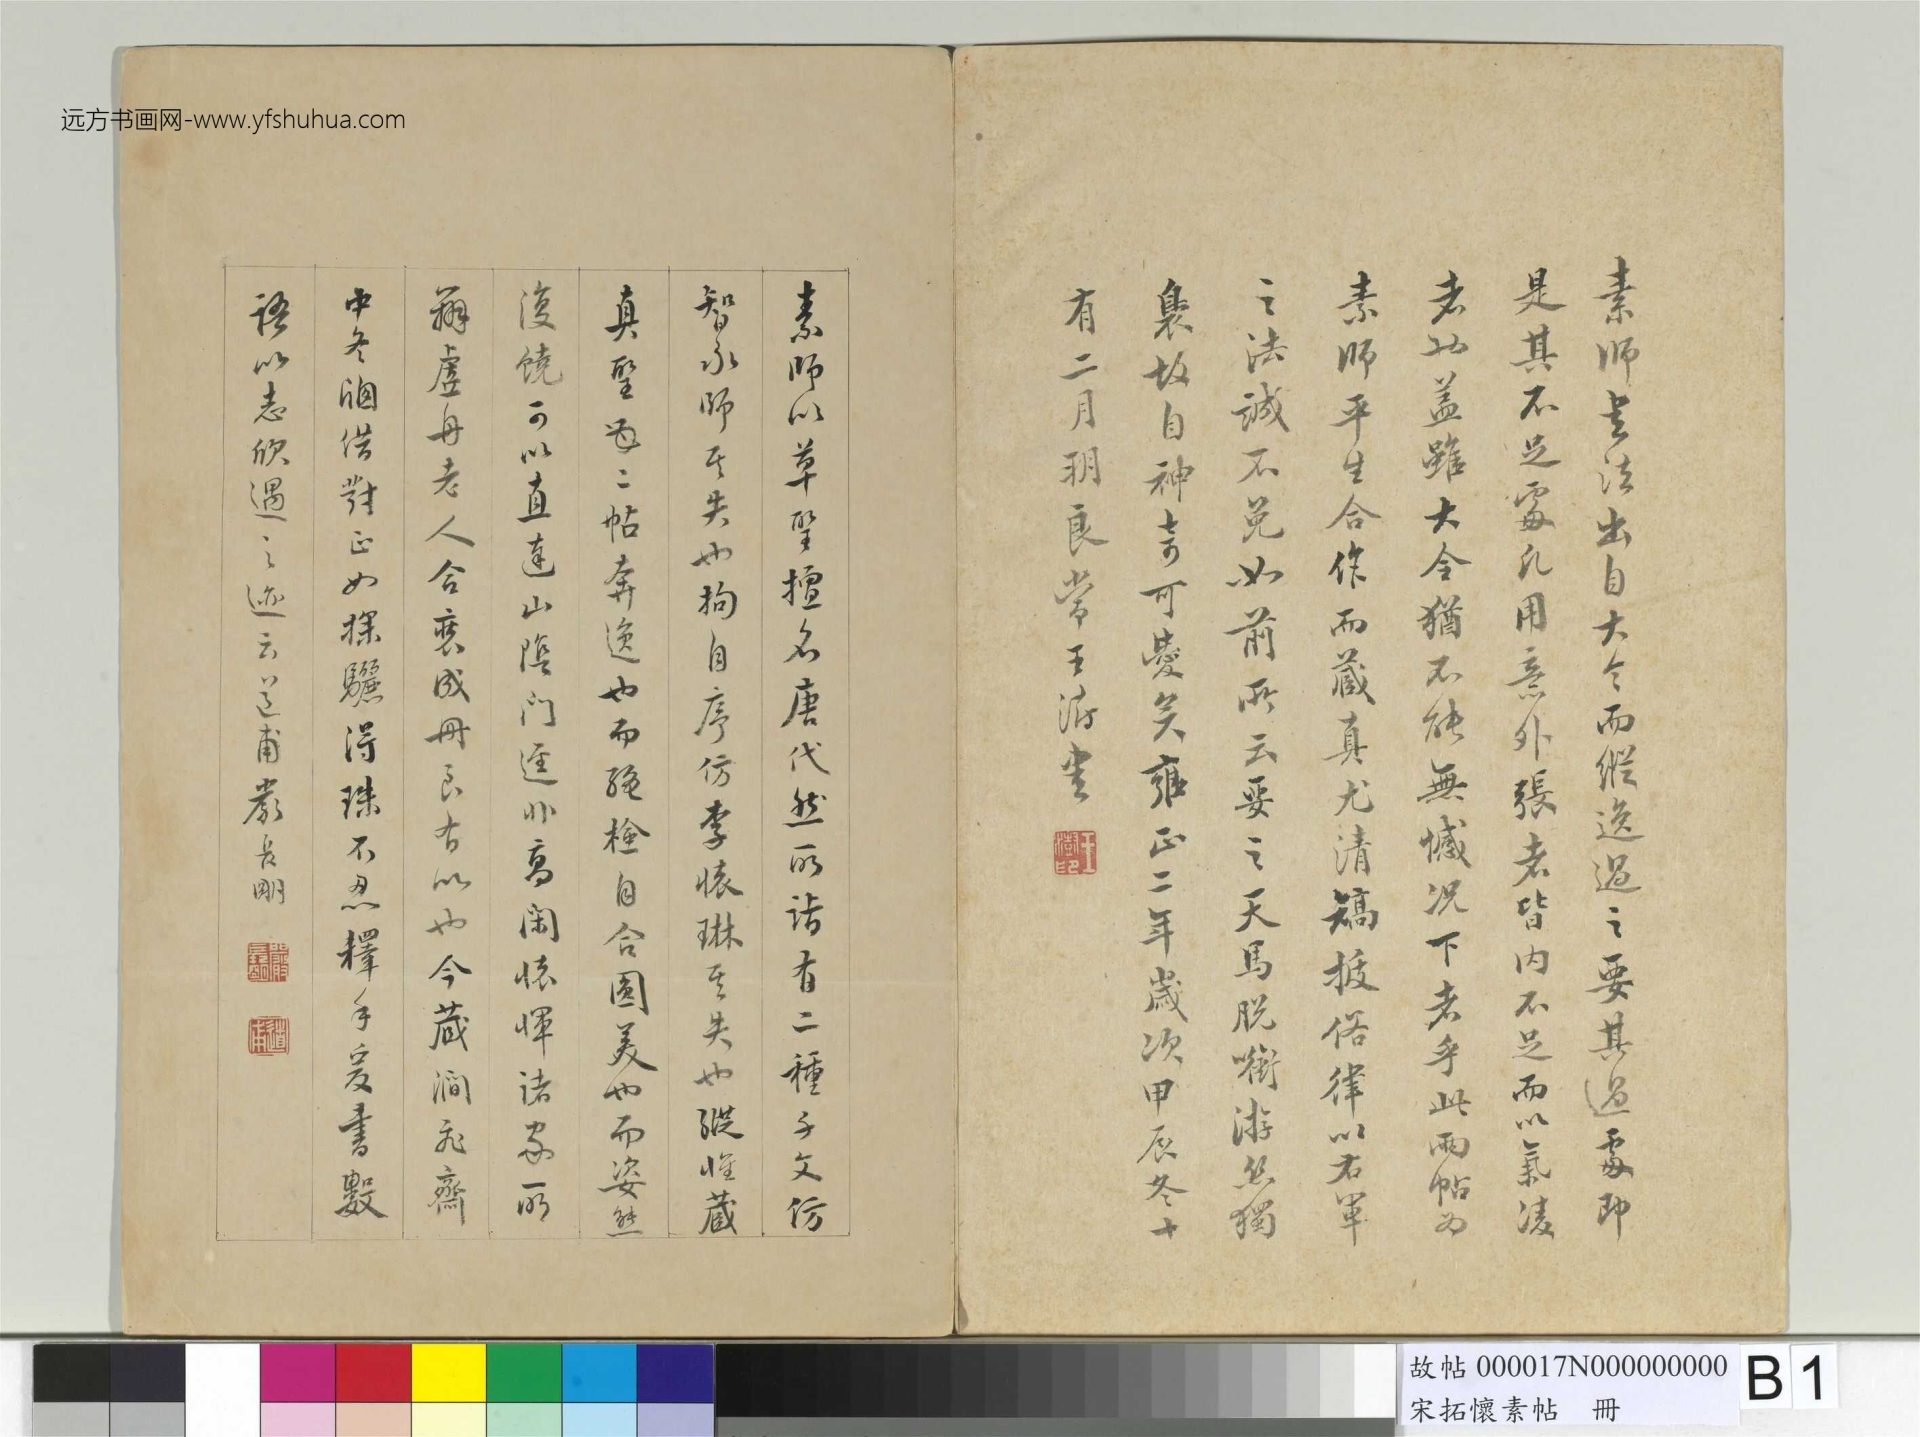 远方书画网-www.yfshuhua.com
素師書法出自大令而縱逸過之要其過處即
是其不足處凡用意外張者皆內不足而以氣凌
者也蓋雖大令猶不能無憾況下者乎此兩帖為
素師平生合作而藏真尤清矯拔俗律以右軍
之法誠不免如前所云要之天馬脫銜游絲獨
裊故自神奇可愛矣雍正二年歲次甲辰冬十
有二月朔良常王澍書
王澍印
素師以草聖擅名唐代然所詣有二種千文仿
智永師其失也拘自序仿李懷琳其失也縱惟藏
真聖母二帖奔逸也而繩檢自合圓美也而姿態
復饒可以直達山陰門逕非高閑懷惲諸家所
虛舟老人合裝成冊良有以也今藏澗飛齋
中冬假對正如探驪得珠不忍釋手爰書數
語以志欣遇之迹云道甫嚴長明
道甫
故帖 000017N000000000
宋拓懷素帖 冊
B 1